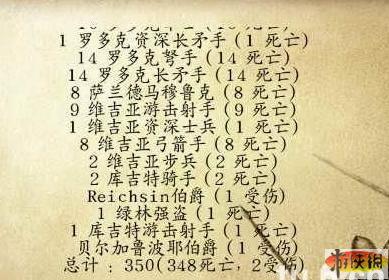 1 罗多克资深长矛手（1 死亡）
14 罗多克弩手（14 死亡）
14 罗多克长矛手（14 死亡）
8 萨兰德马穆鲁克（8 死亡）
9 维吉亚游击射手（9 死亡）
1 维吉亚资深士兵（1 死亡）
8 维吉亚弓箭手（8 死亡）
2 维吉亚步兵（2 死亡）
2 库吉特骑手（2 死亡）
Reichsin伯爵（1 受伤）
1 绿林强盗（1 死亡）
1 库吉特游击射手（1 死亡）
贝尔加鲁波耶伯爵（1 受伤）
总计：350(348死亡，2受伤)
游侠网